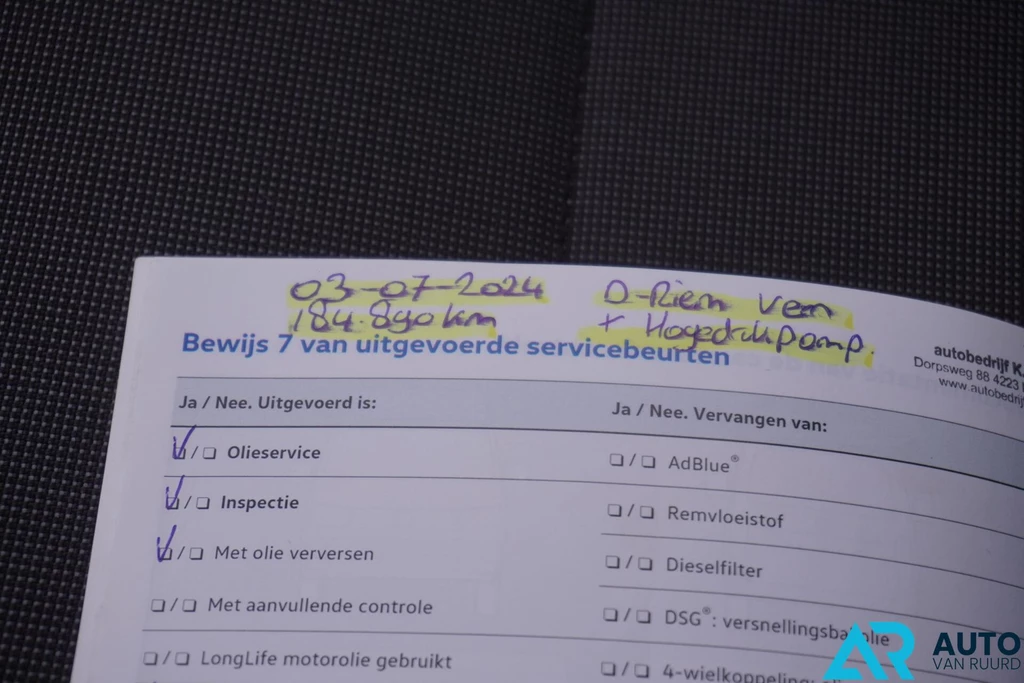 03-07-2024
184.890 km
D-Riem Verv
+ Hogedrukpomp.
Bewijs 7 van uitgevoerde servicebeurten
autobedrijf K.
Dorpsweg 88 4223
www.autobedrij
Ja / Nee. Uitgevoerd is:
Ja / Nee. Vervangen van:
Olieservice
AdBlue®
Inspectie
Remvloeistof
Met olie verversen
Dieselfilter
Met aanvullende controle
DSG®: versnellingsbakolie
LongLife motorolie gebruikt
4-wielkoppeling:
AR AUTO
VAN RUURD